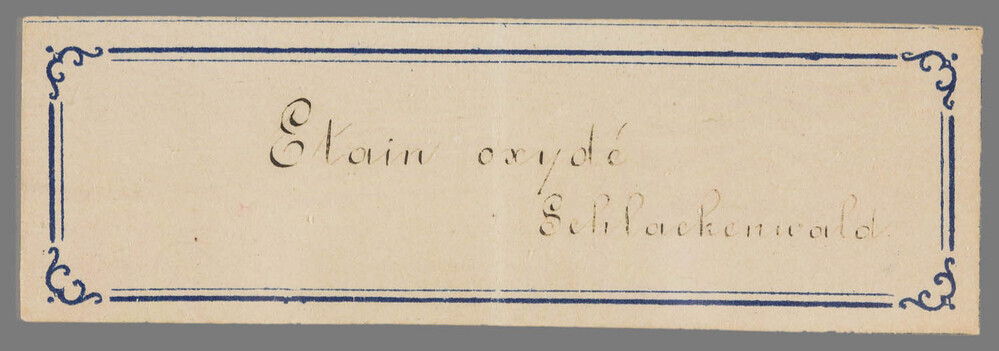 Etain oxydé
Schlackenwald